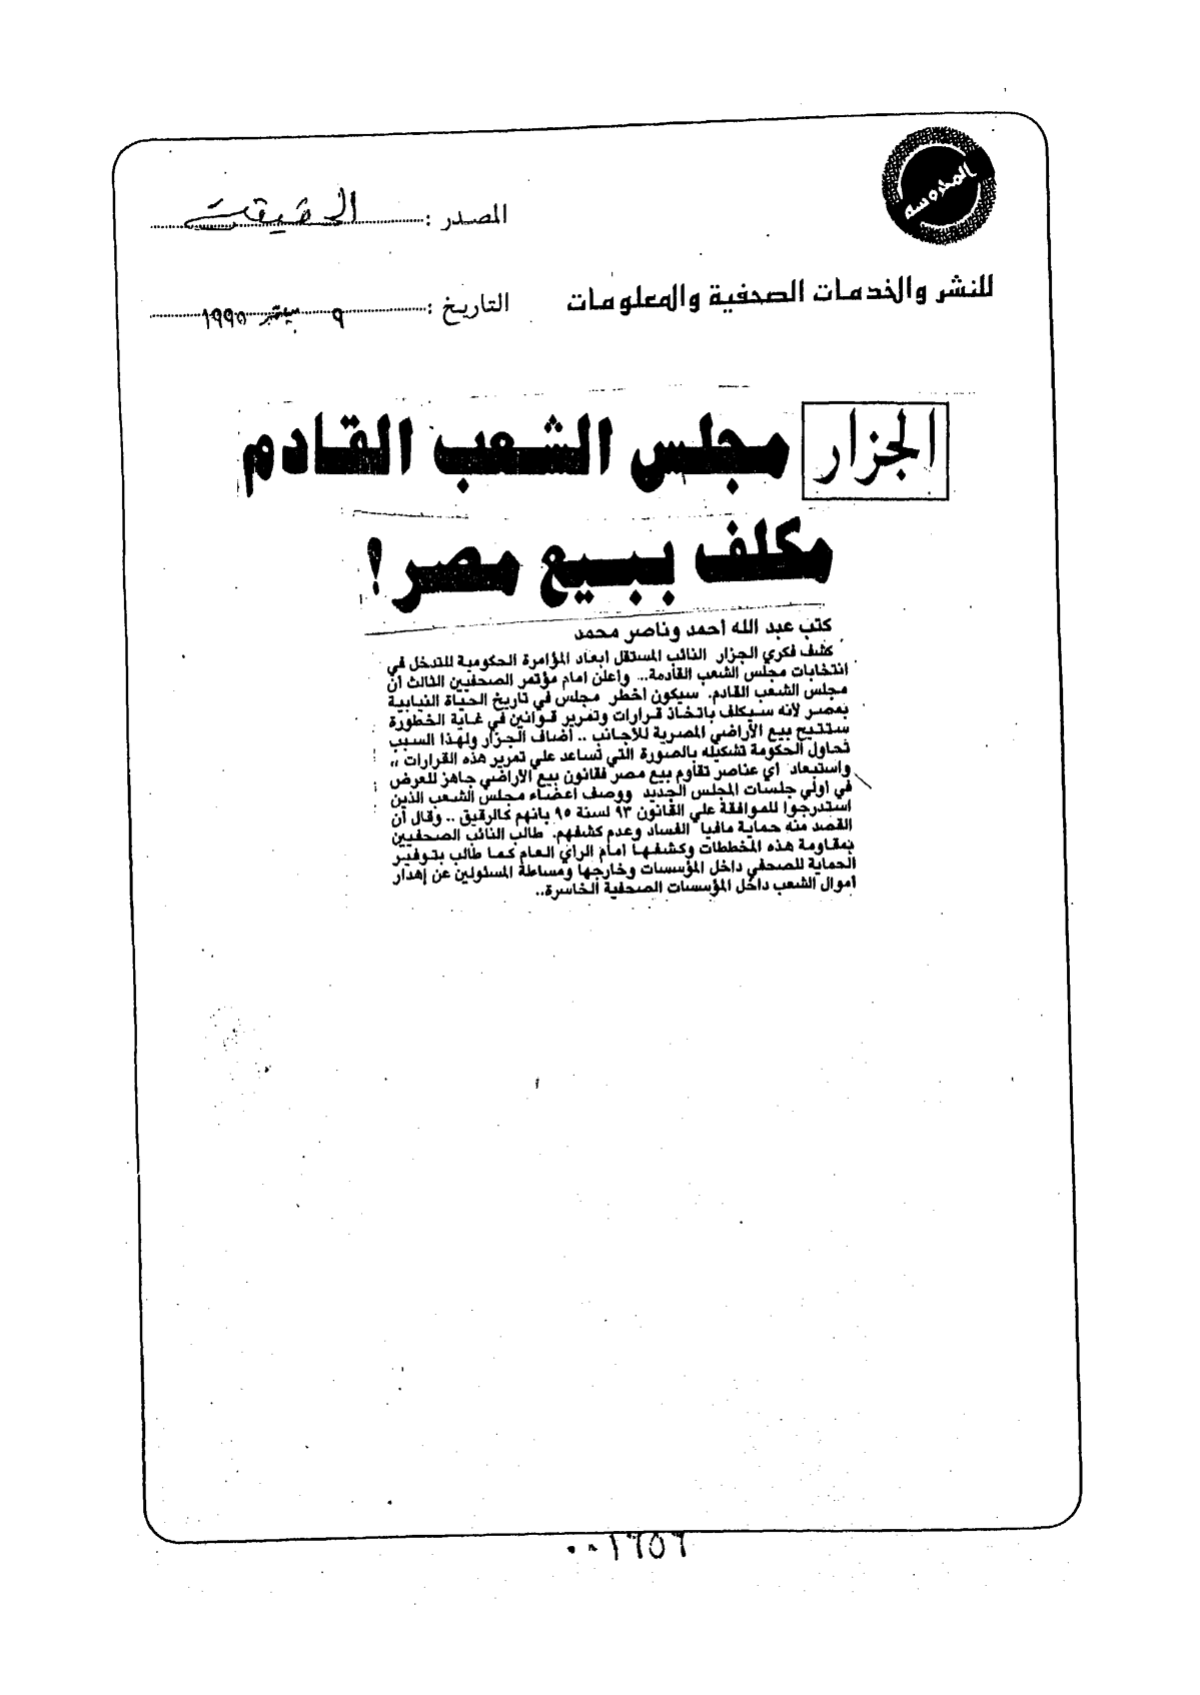 المحروسة
المصدر : الحقيقة
للنشر والخدمات الصحفية والمعلومات
التاريخ : ٩ سبتمبر ١٩٩٥
الجزار مجلس الشعب القادم
مكلف ببيع مصر !
كتب عبد الله احمد وناصر محمد
كشف فكري الجزار النائب المستقل ابعاد المؤامرة الحكومية للتدخل في
انتخابات مجلس الشعب القادمة.. واعلن امام مؤتمر الصحفيين الثالث أن
مجلس الشعب القادم. سيكون اخطر مجلس في تاريخ الحياة النيابية
بمصر لانه سيكلف باتخاذ قرارات وتمرير قوانين في غاية الخطورة
ستتيح بيع الأراضي المصرية للأجانب .. أضاف الجزار ولهذا السبب
تحاول الحكومة تشكيله بالصورة التي تساعد علي تمرير هذه القرارات ,,
واستبعاد اي عناصر تقاوم بيع مصر فقانون بيع الأراضي جاهز للعرض
في اولي جلسات المجلس الجديد ووصف اعضاء مجلس الشعب الذين
استدرجوا للموافقة علي القانون ٩٣ لسنة ٩٥ بانهم كالرقيق .. وقال أن
القصد منه حماية مافيا الفساد وعدم كشفهم. طالب النائب الصحفيين
بمقاومة هذه المخططات وكشفها امام الراي العام كما طالب بتوفير
الحماية للصحفي داخل المؤسسات وخارجها ومساءلة المسئولين عن إهدار
أموال الشعب داخل المؤسسات الصحفية الخاسرة..
٠٠١٦٥٦